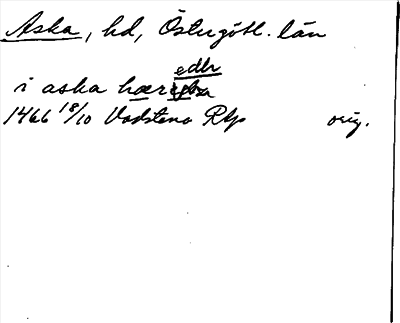 Aska, hd, Östergötl. län
i aska hær
1466 18/10 Vadstena Rkp orig.